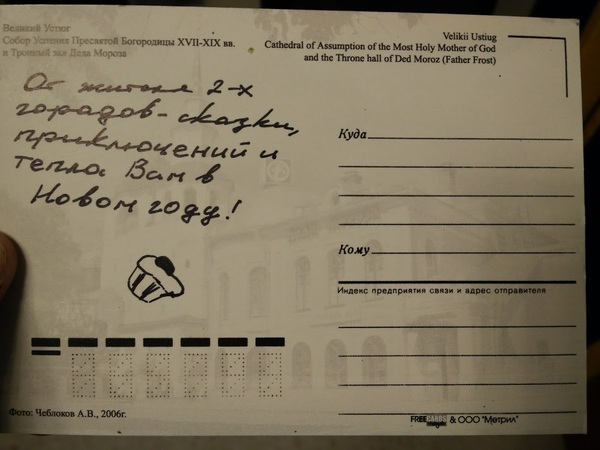 Великий Устюг
Собор Успения Пресвятой Богородицы XVII-XIX вв.
и Тронный зал Деда Мороза
От жителя 2-х
городов - сказки,
приключений и
тепла Вам в
Новом году!
Фото: Чеблоков А.В., 2006г.
Velikii Ustiug
Cathedral of Assumption of the Most Holy Mother of God
and the Throne hall of Ded Moroz (Father Frost)
Куда
Кому
Индекс предприятия связи и адрес отправителя
FREECARDS & ООО "Метрил"